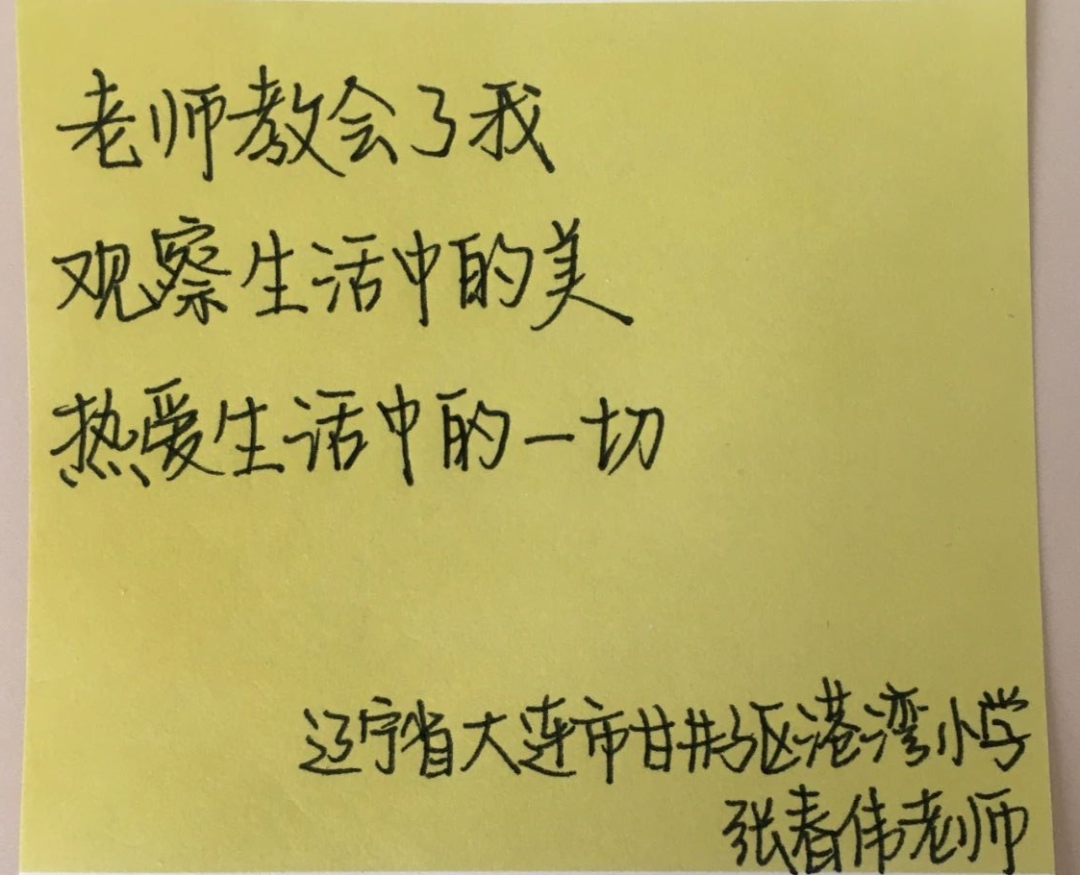 老师教会了我
观察生活中的美
热爱生活中的一切
辽宁省大连市甘井子区港湾小学
张春伟老师